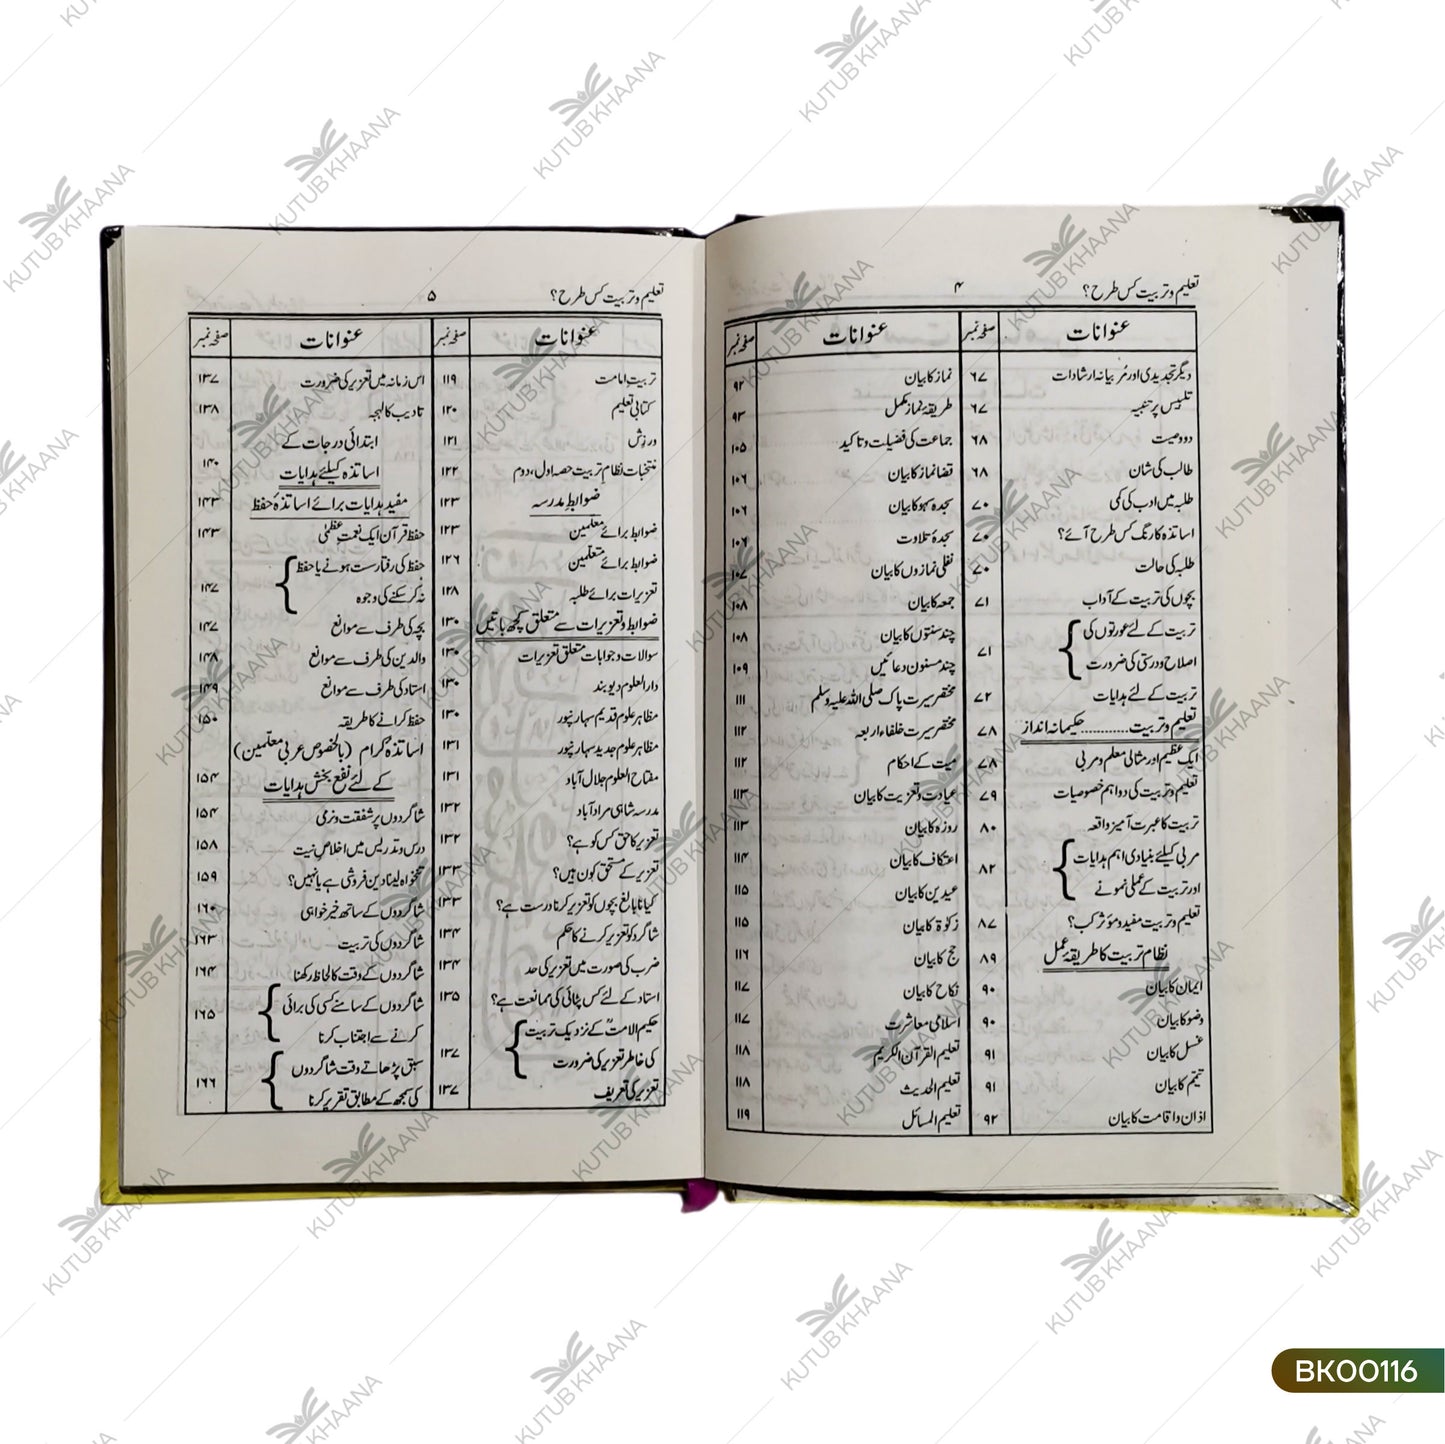 تعلیم و تربیت کس طرح؟ ۴
عنوانات صفحہ نمبر
دیگر تجدیدی اور مُربیانہ ارشادات ۶۷
تلبیس پر تنبیہ ۶۷
دو وصیت ۶۸
طالب کی شان ۶۸
طلبہ میں ادب کی کمی ۷۰
اساتذہ کا رنگ کس طرح آئے؟ ۷۰
طلبہ کی حالت ۷۰
بچوں کی تربیت کے آداب ۷۱
تربیت کے لئے عورتوں کی
اصلاح و درستی کی ضرورت ۷۱
تربیت کے لئے ہدایات ۷۲
تعلیم و تربیت............حکیمانہ انداز ۷۸
ایک عظیم اور مثالی معلم و مربی ۷۸
تعلیم و تربیت کی دو اہم خصوصیات ۷۹
تربیت کا عبرت آمیز واقعہ ۸۰
مربی کیلئے بنیادی اہم ہدایات
اور تربیت کے عملی نمونے ۸۲
تعلیم و تربیت مفید و مؤثر کب؟ ۸۷
نظام تربیت کا طریقۂ عمل ۸۹
ایمان کا بیان ۹۰
وضو کا بیان ۹۰
غسل کا بیان ۹۱
تیمّم کا بیان ۹۱
اذان و اقامت کا بیان ۹۲
عنوانات صفحہ نمبر
نماز کا بیان ۹۲
طریقۂ نماز مکمل ۹۳
جماعت کی فضیلت و تاکید ۱۰۵
قضا نماز کا بیان ۱۰۶
سجدہ سہو کا بیان ۱۰۶
سجدۂ تلاوت ۱۰۶
نفلی نمازوں کا بیان ۱۰۷
جمعہ کا بیان ۱۰۸
چند سنتوں کا بیان ۱۰۸
چند مسنون دعائیں ۱۰۹
مختصر سیرت پاک صلی اللہ علیہ وسلم ۱۱۱
مختصر سیرت خلفاء اربعہ ۱۱۲
میت کے احکام ۱۱۲
عیادت و تعزیت کا بیان ۱۱۳
روزہ کا بیان ۱۱۳
اعتکاف کا بیان ۱۱۴
عیدین کا بیان ۱۱۵
زکوٰۃ کا بیان ۱۱۵
حج کا بیان ۱۱۶
نکاح کا بیان ۱۱۷
اسلامی معاشرت ۱۱۷
تعلیم القرآن الکریم ۱۱۸
تعلیم الحدیث ۱۱۸
تعلیم المسائل ۱۱۹
تعلیم و تربیت کس طرح؟ ۵
عنوانات صفحہ نمبر
تربیتِ امامت ۱۱۹
کتابی تعلیم ۱۲۰
ورزش ۱۲۱
منتخبات نظام تربیت حصہ اول، دوم ۱۲۲
ضوابطِ مدرسہ ۱۲۳
ضوابط برائے معلمین ۱۲۳
ضوابط برائے متعلّمین ۱۲۶
تعزیرات برائے طلبہ ۱۲۸
ضوابط و تعزیرات سے متعلق کچھ باتیں ۱۳۰
سوالات و جوابات متعلق تعزیرات ۱۳۰
دارالعلوم دیوبند ۱۳۰
مظاہر علوم قدیم سہارنپور ۱۳۰
مظاہر علوم جدید سہارنپور ۱۳۱
مفتاح العلوم جلال آباد ۱۳۱
مدرسہ شاہی مرادآباد ۱۳۲
تعزیر کا حق کس کو ہے؟ ۱۳۲
تعزیر کے مستحق کون ہیں؟ ۱۳۳
کیا نابالغ بچوں کو تعزیر کرنا درست ہے؟ ۱۳۳
شاگرد کو تعزیر کرنے کا حکم ۱۳۴
ضرب کی صورت میں تعزیر کی حد ۱۳۴
استاد کے لئے کس پٹائی کی ممانعت ہے؟ ۱۳۵
حکیم الامتؒ کے نزدیک تربیت
کی خاطر تعزیر کی ضرورت ۱۳۷
تعزیر کی تعریف ۱۳۷
عنوانات صفحہ نمبر
اس زمانہ میں تعزیر کی ضرورت ۱۳۷
تادیب کا لہجہ ۱۳۸
ابتدائی درجات کے
اساتذہ کیلئے ہدایات ۱۴۰
مفید ہدایات برائے اساتذۂ حفظ ۱۴۳
حفظ قرآن ایک نعمتِ عظمیٰ ۱۴۳
حفظ کی رفتار سست ہونے یا حفظ
نہ کر سکنے کی وجوہ ۱۴۷
بچہ کی طرف سے موانع ۱۴۷
والدین کی طرف سے موانع ۱۴۸
استاد کی طرف سے موانع ۱۴۹
حفظ کرانے کا طریقہ ۱۵۰
اساتذہ کرام (بالخصوص عربی معلّمین)
کے لئے نفع بخش ہدایات ۱۵۴
شاگردوں پر شفقت و نرمی ۱۵۴
درس و تدریس میں اخلاصِ نیت ۱۵۸
تنخواہ لینا دین فروشی ہے یا نہیں؟ ۱۵۹
شاگردوں کے ساتھ خیر خواہی ۱۶۰
شاگردوں کی تربیت ۱۶۳
شاگردوں کے وقت کا لحاظ رکھنا ۱۶۴
شاگردوں کے سامنے کسی کی برائی
کرنے سے اجتناب کرنا ۱۶۵
سبق پڑھاتے وقت شاگردوں
کی سمجھ کے مطابق تقریر کرنا ۱۶۶
KUTUB KHAANA
BK00116